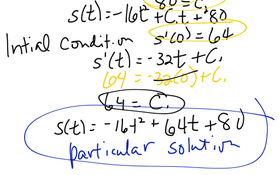 80 = C
s(t) = -16t² + C₁t + 80
Intial Condition s'(0) = 64
s'(t) = -32t + C₁
64 = -32(0) + C₁
64 = C₁
s(t) = -16t² + 64t + 80
particular solution